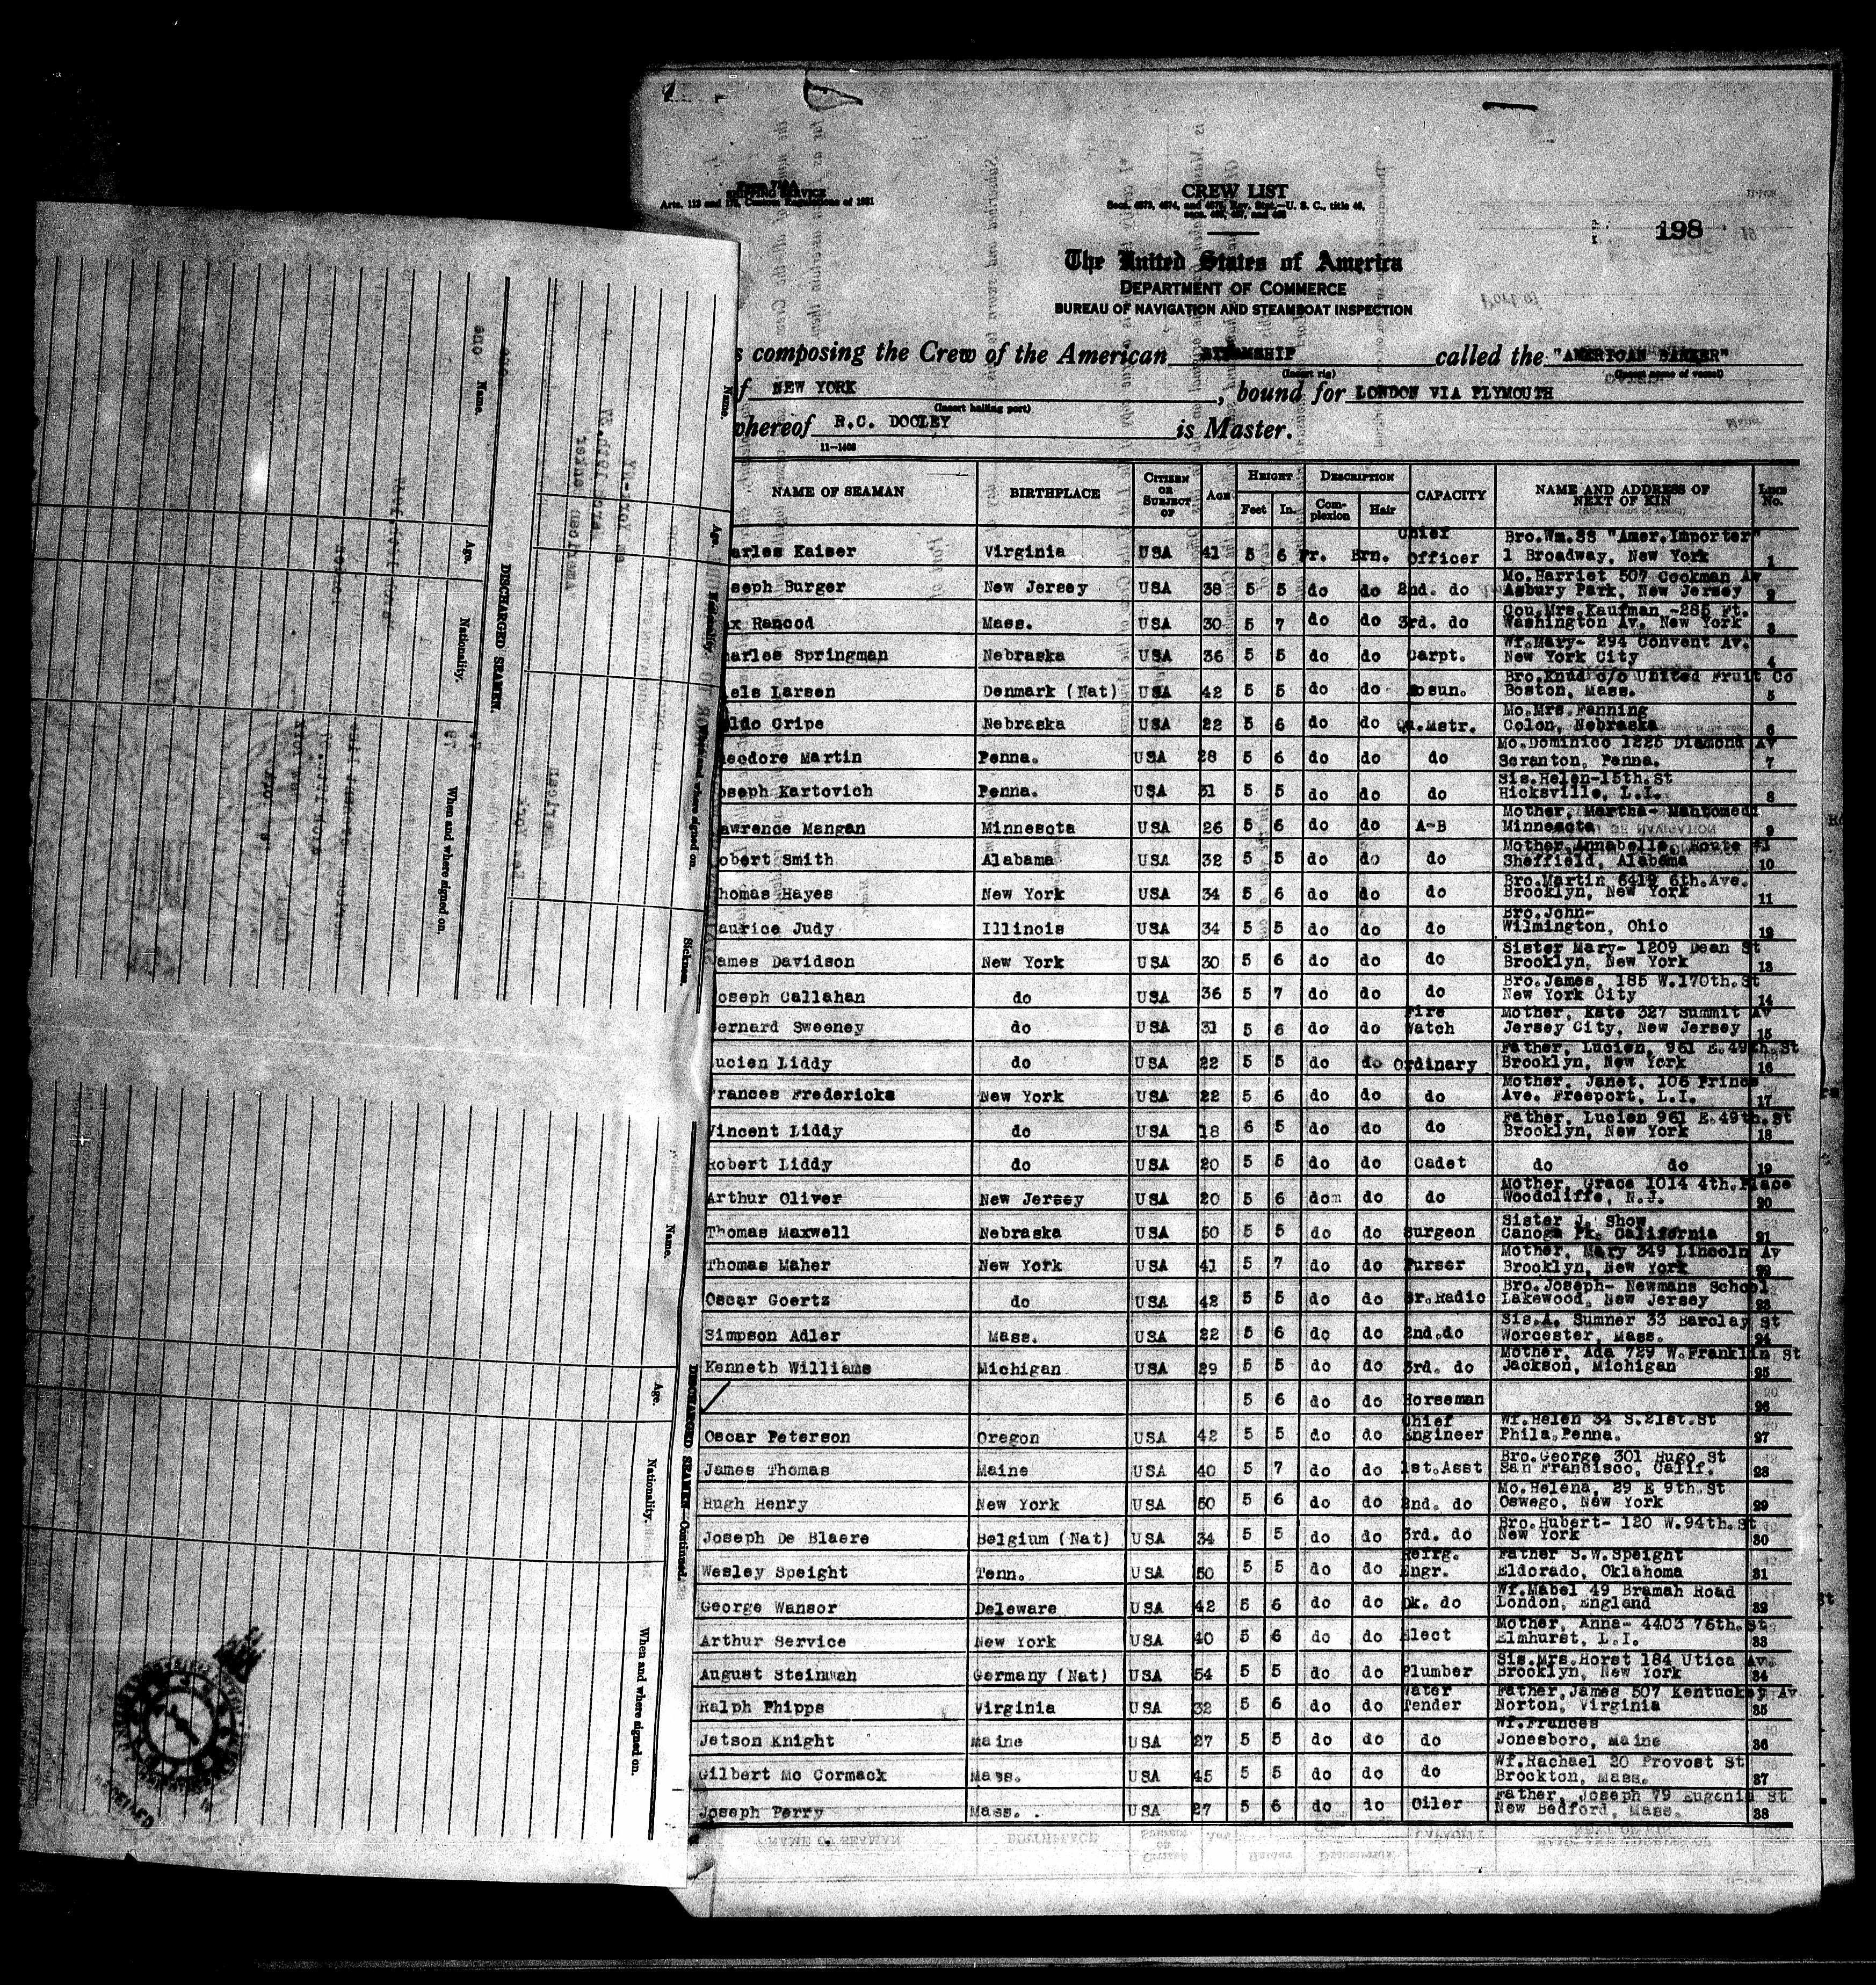 Arts. 113 and
Custom Regulations of 1931
CREW LIST
Secs. 4573, 4574, and 4575, Rev. Stat.—U. S. C., title 46,
198
The United States of America
DEPARTMENT OF COMMERCE
BUREAU OF NAVIGATION AND STEAMBOAT INSPECTION
composing the Crew of the American STEAMSHIP called the "AMERICAN BANKER"
(Insert rig) (Insert name of vessel)
of NEW YORK , bound for LONDON VIA PLYMOUTH
(Insert hailing port)
whereof R.C. DOOLEY is Master.
11—1406
NAME OF SEAMAN BIRTHPLACE CITIZEN OR SUBJECT OF AGE HEIGHT Feet In. DESCRIPTION Complexion Hair CAPACITY NAME AND ADDRESS OF NEXT OF KIN LINE No.
arles Kaiser Virginia USA 41 5 6 Fr. Brn. Chief Officer Bro.Wm.SS "Amer.Importer" 1 Broadway, New York 1
seph Burger New Jersey USA 38 5 5 do do 2nd. do Mo.Harriet 507 Cookman Av Asbury Park, New Jersey 2
x Rancod Mass. USA 30 5 7 do do 3rd. do Cou.Mrs.Kaufman -285 Ft. Washington Av. New York 3
harles Springman Nebraska USA 36 5 5 do do Carpt. Wf.Mary- 294 Convent Av. New York City 4
iels Larsen Denmark (Nat) USA 42 5 5 do do Bosun. Bro.Knud c/o United Fruit Co Boston, Mass. 5
ldo Gripe Nebraska USA 22 5 6 do do Qu.Mstr. Mo.Mrs.Fanning Colon, Nebraska 6
heodore Martin Penna. USA 28 5 6 do do do Mo.Dominico 1225 Diamond Av Scranton, Penna. 7
oseph Kartovich Penna. USA 31 5 5 do do do Sis.Helen-15th.St Hicksville, L.I. 8
awrence Mangan Minnesota USA 26 5 6 do do A-B Mother, Martha- Mahtomedi Minnesota 9
obert Smith Alabama USA 32 5 5 do do do Mother Annabelle, Route #1 Sheffield, Alabama 10
homas Hayes New York USA 34 5 6 do do do Bro.Martin 6419 6th.Ave. Brooklyn, New York 11
aurice Judy Illinois USA 34 5 5 do do do Bro.John- Wilmington, Ohio 12
ames Davidson New York USA 30 5 6 do do do Sister Mary- 1209 Dean St Brooklyn, New York 13
oseph Callahan do USA 36 5 7 do do do Bro.James, 185 W.170th.St New York City 14
ernard Sweeney do USA 31 5 6 do do Fire Watch Mother, Kate 327 Summit Av Jersey City, New Jersey 15
ucien Liddy do USA 22 5 5 do do Ordinary Father, Lucien, 961 E.49th.St Brooklyn, New York 16
Frances Fredericks New York USA 22 5 6 do do do Mother, Janet, 106 Prince Ave. Freeport, L.I. 17
Vincent Liddy do USA 18 6 5 do do do Father, Lucien 961 E.49th.St Brooklyn, New York 18
Robert Liddy do USA 20 5 5 do do Cadet do do 19
Arthur Oliver New Jersey USA 20 5 6 dom do do Mother, Grace 1014 4th.Place Woodcliffe, N.J. 20
Thomas Maxwell Nebraska USA 50 5 5 do do Surgeon Sister J. Show Canoga Pk. California 21
Thomas Maher New York USA 41 5 7 do do Purser Mother, Mary 349 Lincoln Av Brooklyn, New York 22
Oscar Goertz do USA 42 5 5 do do Sr.Radio Bro.Joseph- Newmans School Lakewood, New Jersey 23
Simpson Adler Mass. USA 22 5 6 do do 2nd.do Sis.A. Sumner 33 Barclay St Worcester, Mass. 24
Kenneth Williams Michigan USA 29 5 5 do do 3rd. do Mother, Ada 729 W.Franklin St Jackson, Michigan 25
5 6 do do Horseman 26
Oscar Peterson Oregon USA 42 5 5 do do Chief Engineer Wf.Helen 34 S.21st.St Phila.Penna. 27
James Thomas Maine USA 40 5 7 do do 1st.Asst Bro.George 301 Hugo St San Francisco, Calif. 28
Hugh Henry New York USA 50 5 6 do do 2nd. do Mo.Helena, 29 E 9th.St Oswego, New York 29
Joseph De Blaere Belgium (Nat) USA 34 5 5 do do 3rd. do Bro.Hubert- 120 W.94th.St New York 30
Wesley Speight Tenn. USA 50 5 5 do do Refrg. Engr. Father S.W.Speight Eldorado, Oklahoma 31
George Wansor Deleware USA 42 5 6 do do Dk. do Wf.Mabel 49 Bramah Road London, England 32
Arthur Service New York USA 40 5 6 do do Elect Mother, Anna- 4403 76th.St Elmhurst, L.I. 33
August Steinman Germany (Nat) USA 54 5 5 do do Plumber Sis.Mrs.Horst 184 Utica Av. Brooklyn, New York 34
Ralph Phipps Virginia USA 32 5 6 do do Water Tender Father, James 507 Kentucky Av Norton, Virginia 35
Jetson Knight Maine USA 27 5 5 do do do Wf.Frances Jonesboro, Maine 36
Gilbert Mc Cormack Mass. USA 45 5 5 do do do Wf.Rachael 20 Provost St Brockton, Mass. 37
Joseph Perry Mass. USA 27 5 6 do do Oiler Father, Joseph 79 Eugenia St New Bedford, Mass. 38
DISCHARGED SEAMEN.
Name. Age. Nationality. When and where signed on.
Name. Age. Nationality. When and where signed on. Sickness.
DISCHARGED SEAMEN—Continued.
Name. Age. Nationality. When and where signed on.
RECEIVED